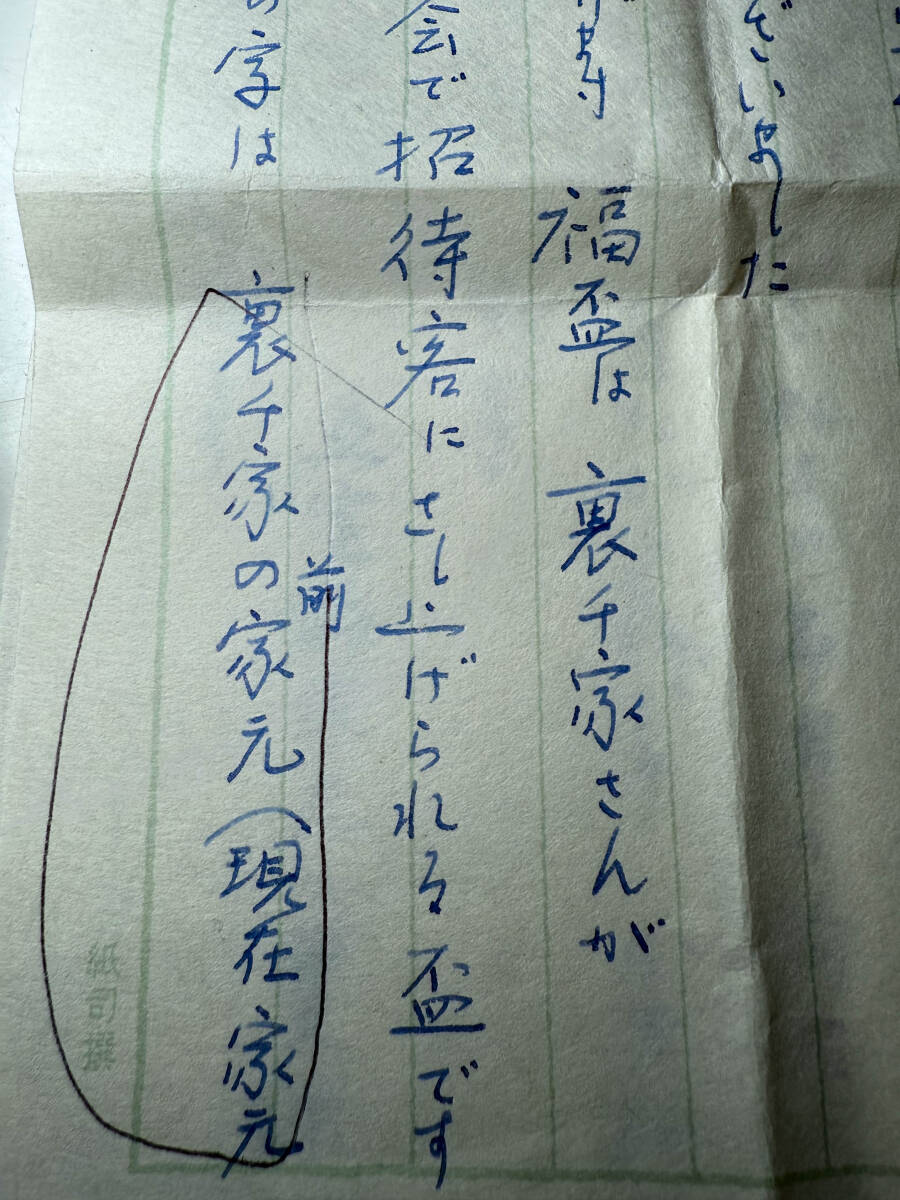 ざいました
ます 福盃は 裏千家さんが
会で招待客にさし上げられる盃です
の字は 裏千家の前家元(現在家元
紙司撰